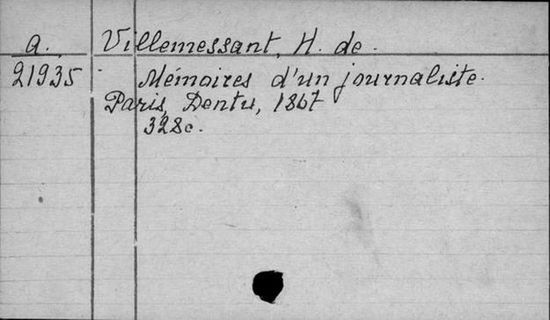 a. Villemessant, H. de.
21935 Mémoires d'un journaliste.
Paris, Dentu, 1867
328c.